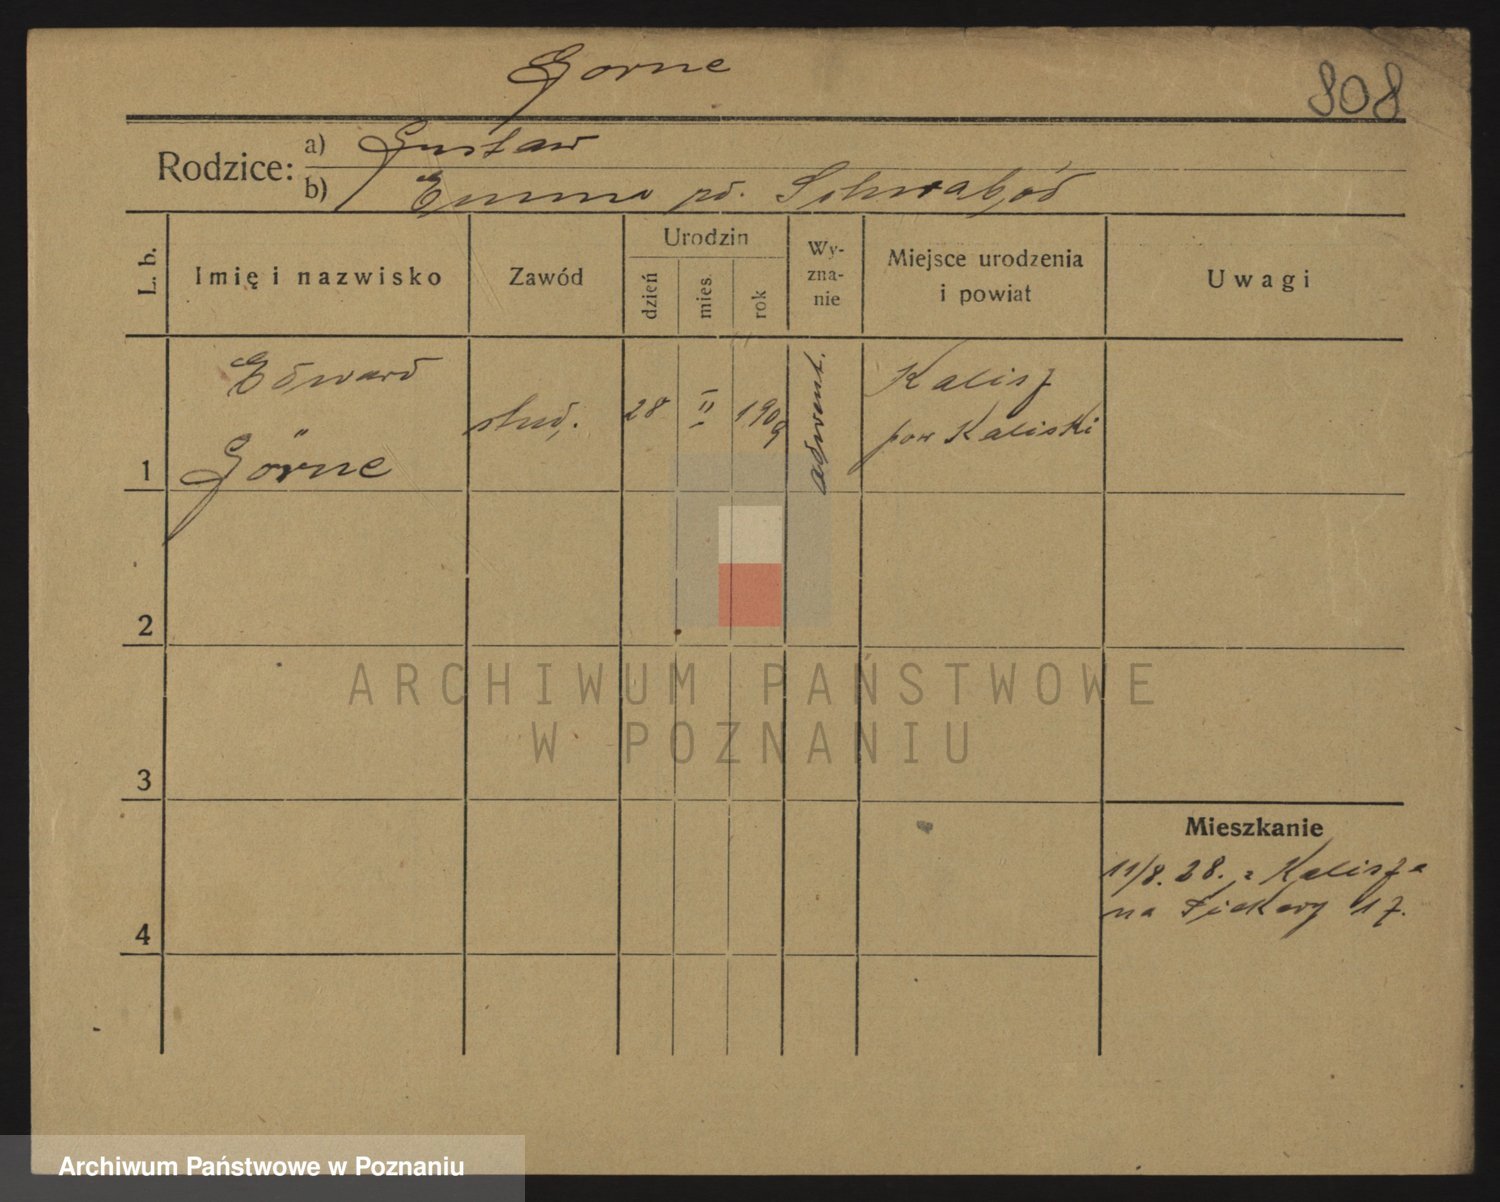 Gorne
808
Rodzice: a) Gustaw
b) Emma
L. b.
Imię i nazwisko
Zawód
Urodzin
dzień
mies.
rok
Wy-
zna-
nie
Miejsce urodzenia
i powiat
Uwagi
1
Edward
Görne
stud.
28
II
1909
adwent.
Kalisz
pow Kaliski
2
3
4
Mieszkanie
11/8. 28. z Kalisza
na Piekary 17.
ARCHIWUM PAŃSTWOWE
W POZNANIU
Archiwum Państwowe w Poznaniu